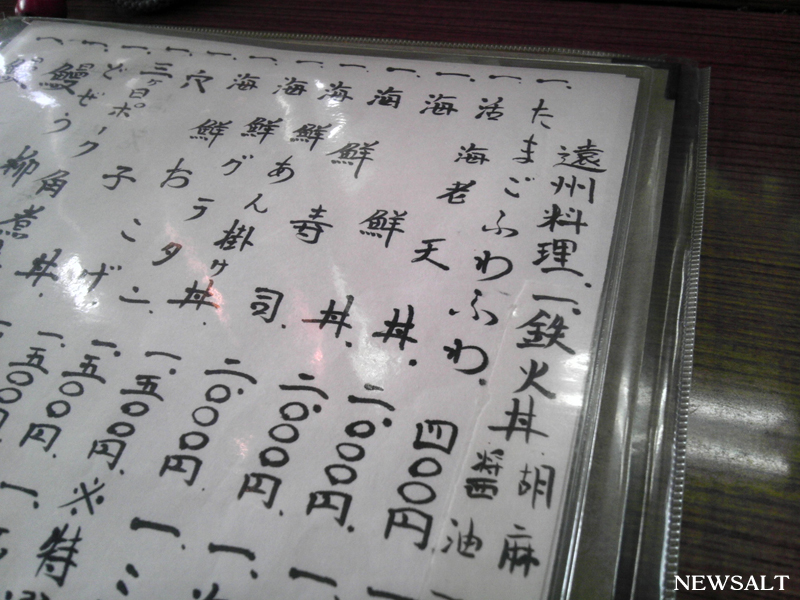 遠州料理 一、鉄火丼 胡麻醤油
一、たまごふわふわ 四〇〇円
一、活海老天丼 二、〇〇〇円
一、海鮮丼 二、〇〇〇円
一、海鮮寿司 二、〇〇〇円
一、海鮮あん掛ヶ丼 一、五〇〇円
一、海鮮グラタン 一、五〇〇円
一、海鮮おこげ 一、五〇〇円
一、穴子丼
一、三ヶ日ポーク角煮
一、どぜう柳
一、鰻
※特
NEWSALT